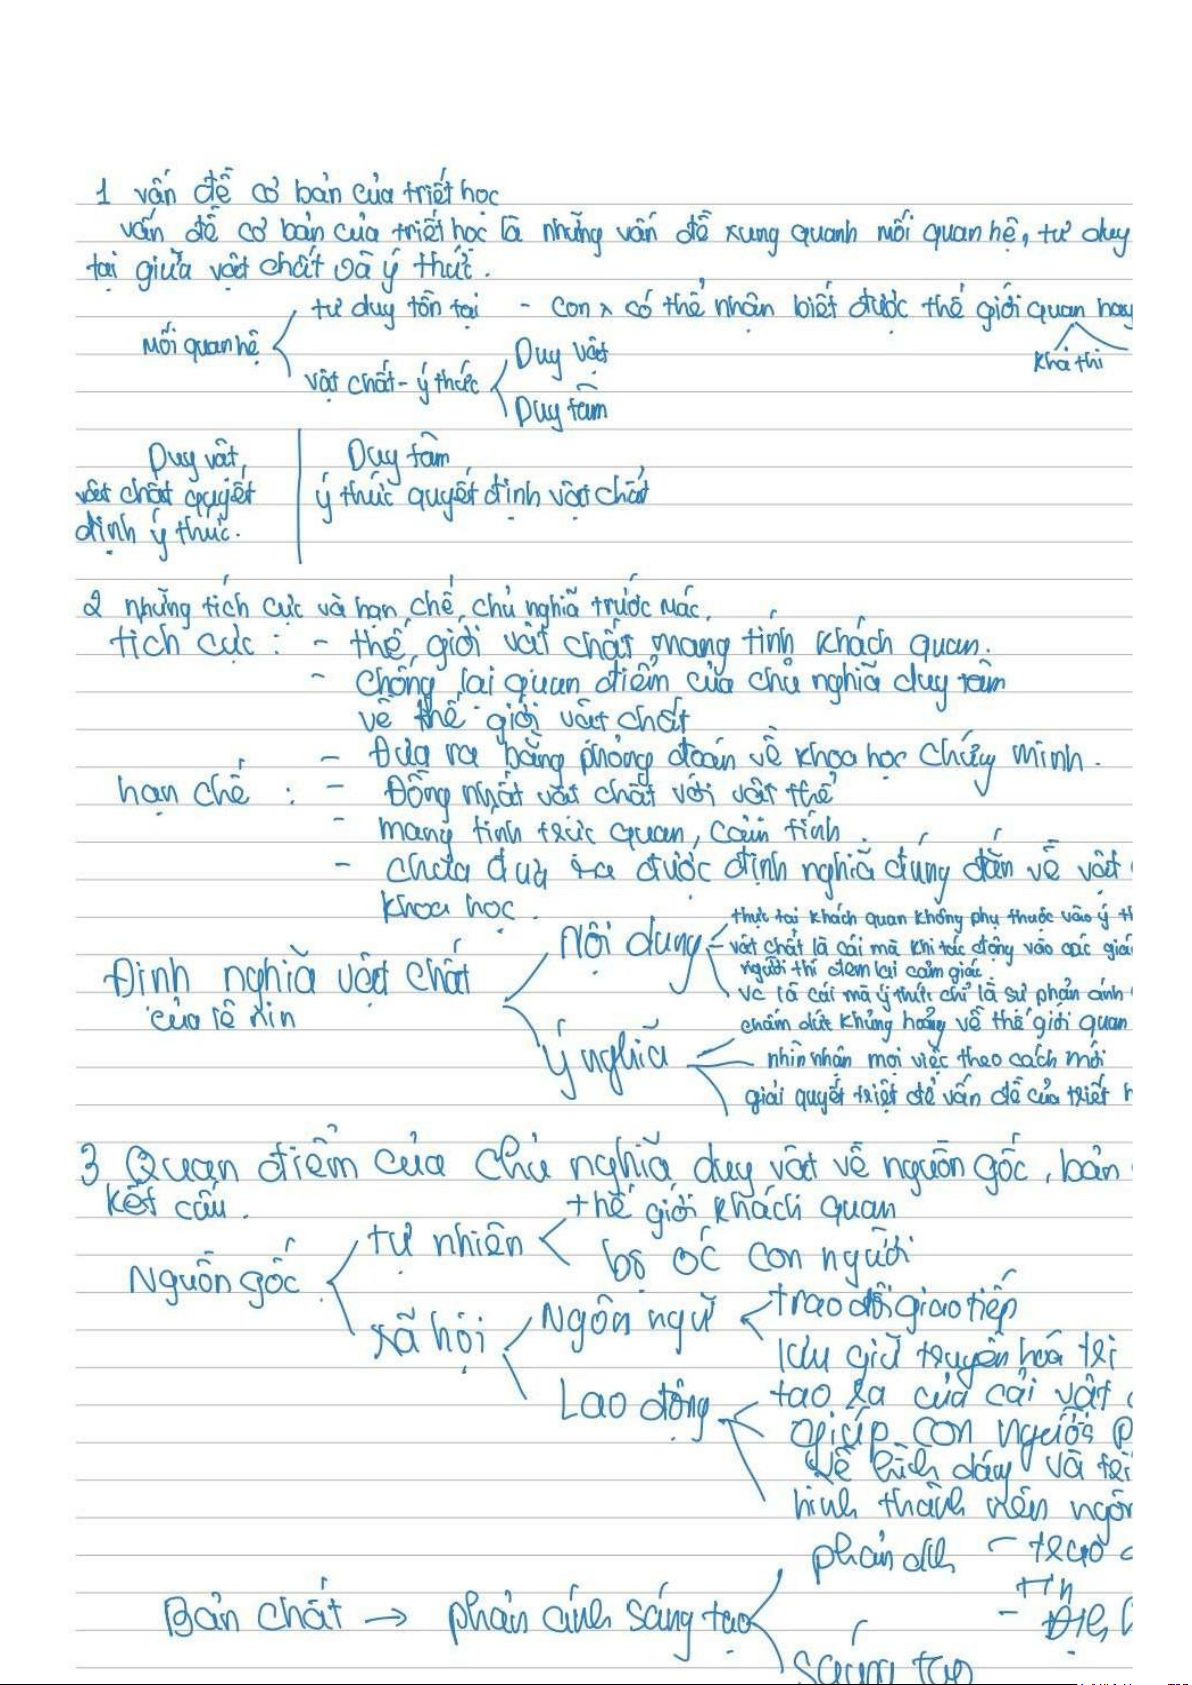 1 vấn đề cơ bản của triết học
vấn đề cơ bản của triết học là những vấn đề xung quanh mối quan hệ, tư duy
tại giữa vật chất và ý thức.
mối quan hệ
tư duy tồn tại - con x có thể nhận biết được thế giới quan hay
khả thi
vật chất - ý thức
Duy vật
Duy tâm
Duy vật,
vật chất quyết
định ý thức.
Duy tâm
ý thức quyết định vật chất
2 những tích cực và hạn chế, chủ nghĩa trước Mác.
tích cực : - thế giới vật chất mang tính khách quan.
- chống lại quan điểm của chủ nghĩa duy tâm
về thế giới vật chất
- Đưa ra bằng phỏng đoán về khoa học chứng minh.
hạn chế : - Đồng nhất vật chất với vật thể
- mang tính trực quan, cảm tính.
- chưa đưa ra được định nghĩa đúng đắn về vật
khoa học.
Định nghĩa vật chất
của lê nin
Nội dung
thực tại khách quan không phụ thuộc vào ý th
- vật chất là cái mà khi tác động vào các giá
người thì đem lại cảm giác.
vc là cái mà ý thức chỉ là sự phản ánh
Ý nghĩa
chấm dứt khủng hoảng về thế giới quan
nhìn nhận mọi việc theo cách mới
giải quyết triệt để vấn đề của triết h
3 Quan điểm của chủ nghĩa duy vật về nguồn gốc, bản
kết cấu.
Nguồn gốc
tự nhiên
thế giới khách quan
bộ óc con người
xã hội
Ngôn ngữ
trao đổi giao tiếp
lưu giữ truyền hoá tri
Lao động
tạo ra của cải vật
giúp con người p
về hình dáng và trí
hình thành nên ngôn
Bản chất → phản ánh sáng tạo
phản ánh
sáng tạo